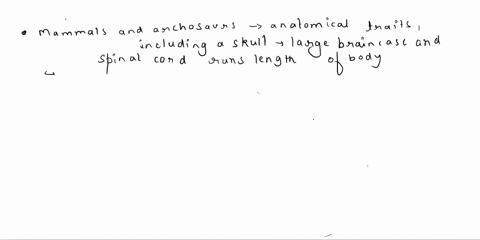 • Mammals and archosaurs → anatomical traits,
including a skull → large braincase and
spinal cord runs length of body